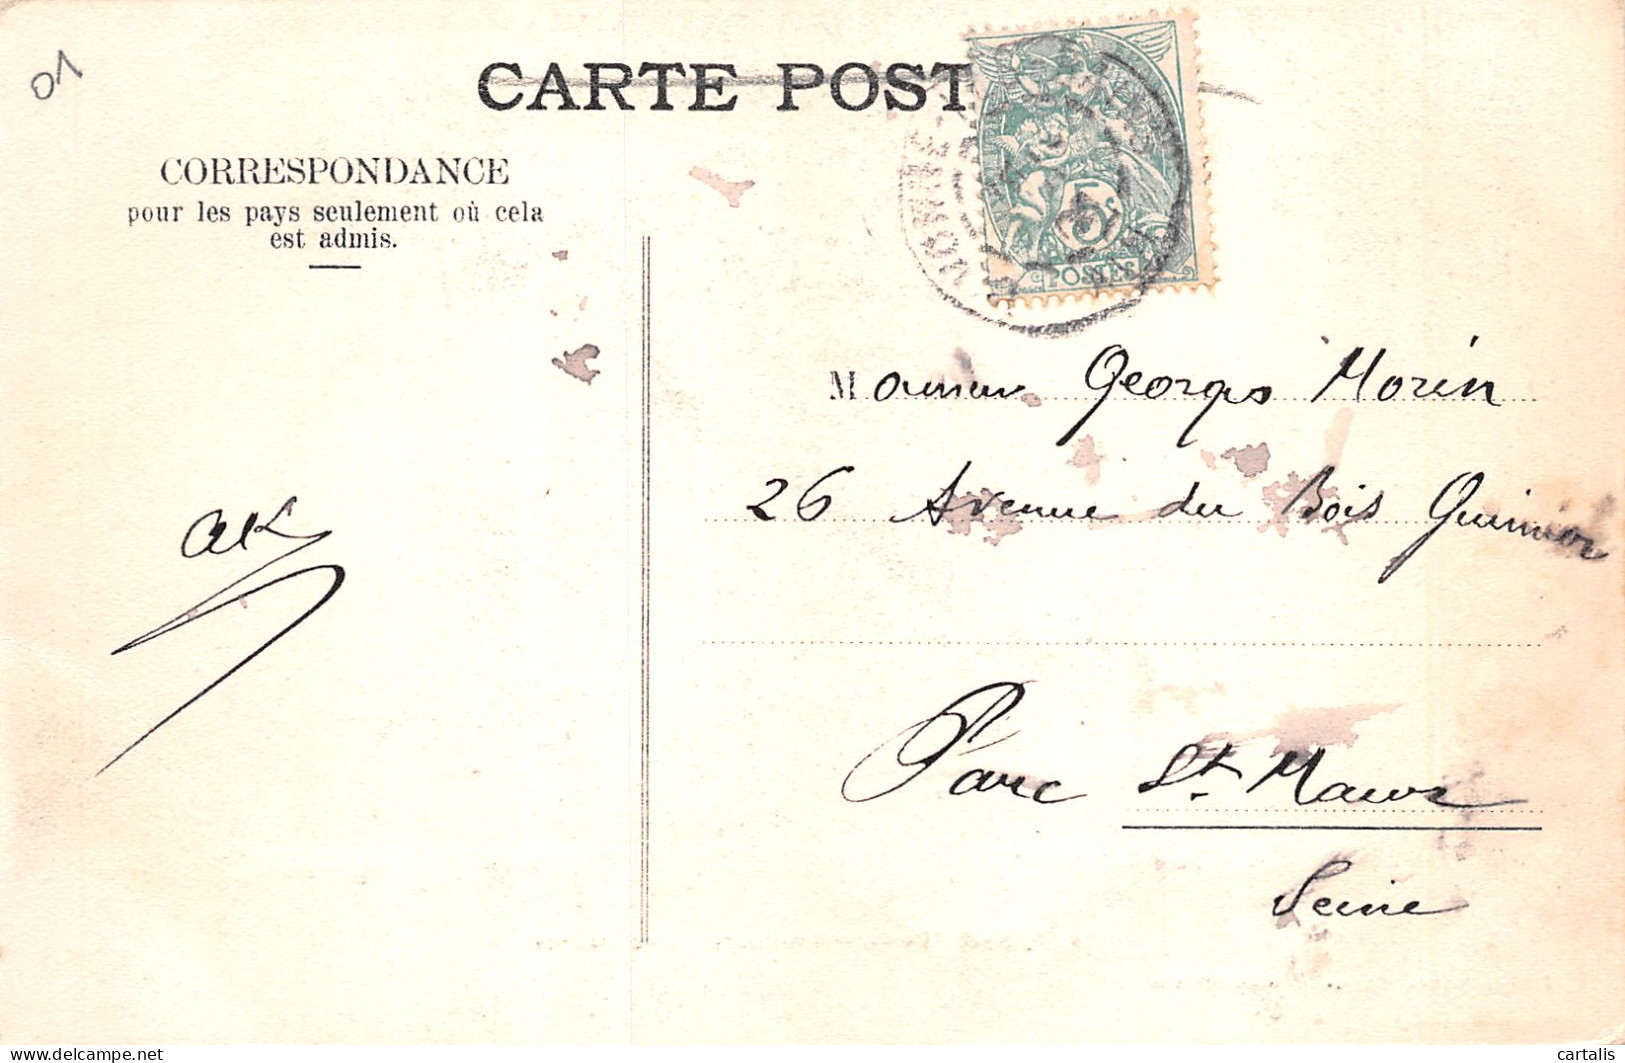 01
CARTE POST
CORRESPONDANCE
pour les pays seulement où cela
est admis.
5c
POSTES
Monsieur Georges Morin
26 Avenue du Bois Guimier
Parc St. Maur
Seine
https://www.delcampe.net
cartalis